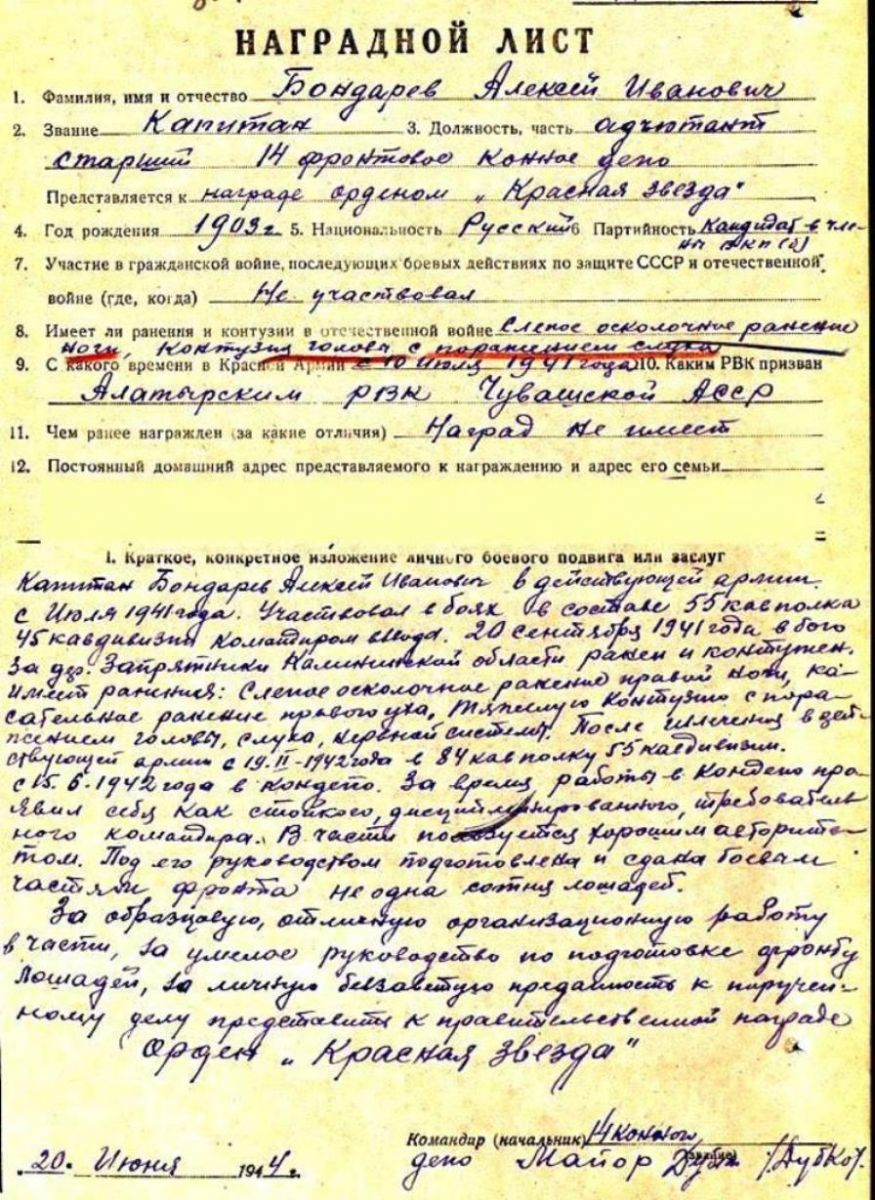 НАГРАДНОЙ ЛИСТ
1. Фамилия, имя и отчество Бондарев Алексей Иванович
2. Звание Капитан 3. Должность, часть адъютант
старший 14 фронтовое конное депо
Представляется к награде орденом „Красная звезда"
4. Год рождения 1903 г 5. Национальность Русский 6 Партийность Кандидат в чле-
ны ВКП(б)
7. Участие в гражданской войне, последующих боевых действиях по защите СССР и отечественной
войне (где, когда) Не участвовал
8. Имеет ли ранения и контузии в отечественной войне Слепое осколочное ранение
ноги, контузия головы с поражением слуха
9. С какого времени в Красной Армии с 10 июля 1941 года 10. Каким РВК призван
Алатырским РВК Чувашской АССР
11. Чем ранее награжден (за какие отличия) Наград не имеет
12. Постоянный домашний адрес представляемого к награждению и адрес его семьи
I. Краткое, конкретное изложение личного боевого подвига или заслуг
Капитан Бондарев Алексей Иванович в действующей армии
с Июля 1941 года. Участвовал в боях в составе 55 кавполка
45 кавдивизии командиром взвода. 20 сентября 1941 года в бою
за др. Запрятники Калининской области ранен и контужен.
Имеет ранения: Слепое осколочное ранение правой ноги, ка-
сательное ранение правого уха, тяжелую контузию с пора-
жением головы, слуха, нервной системы. После излечения в дей-
ствующей армии с 19.II-1942 года в 84 кавполку 55 кавдивизии.
с 15.6-1942 года в кондепо. За время работы в кондепо про-
явил себя как стойкого, дисциплинированного, требователь
ного командира. В части пользуется хорошим авторите-
том. Под его руководством подготовлена и сдана боевым
частям фронта не одна сотня лошадей.
За образцовую, отличную организационную работу
в части, за умелое руководство по подготовке фронту
лошадей, за личную беззаветную преданность к поручен-
ному делу представить к правительственной награде
Орден „Красная звезда"
Командир (начальник) 14 конного
20. Июня 1944 г. депо Майор /Дубко/.